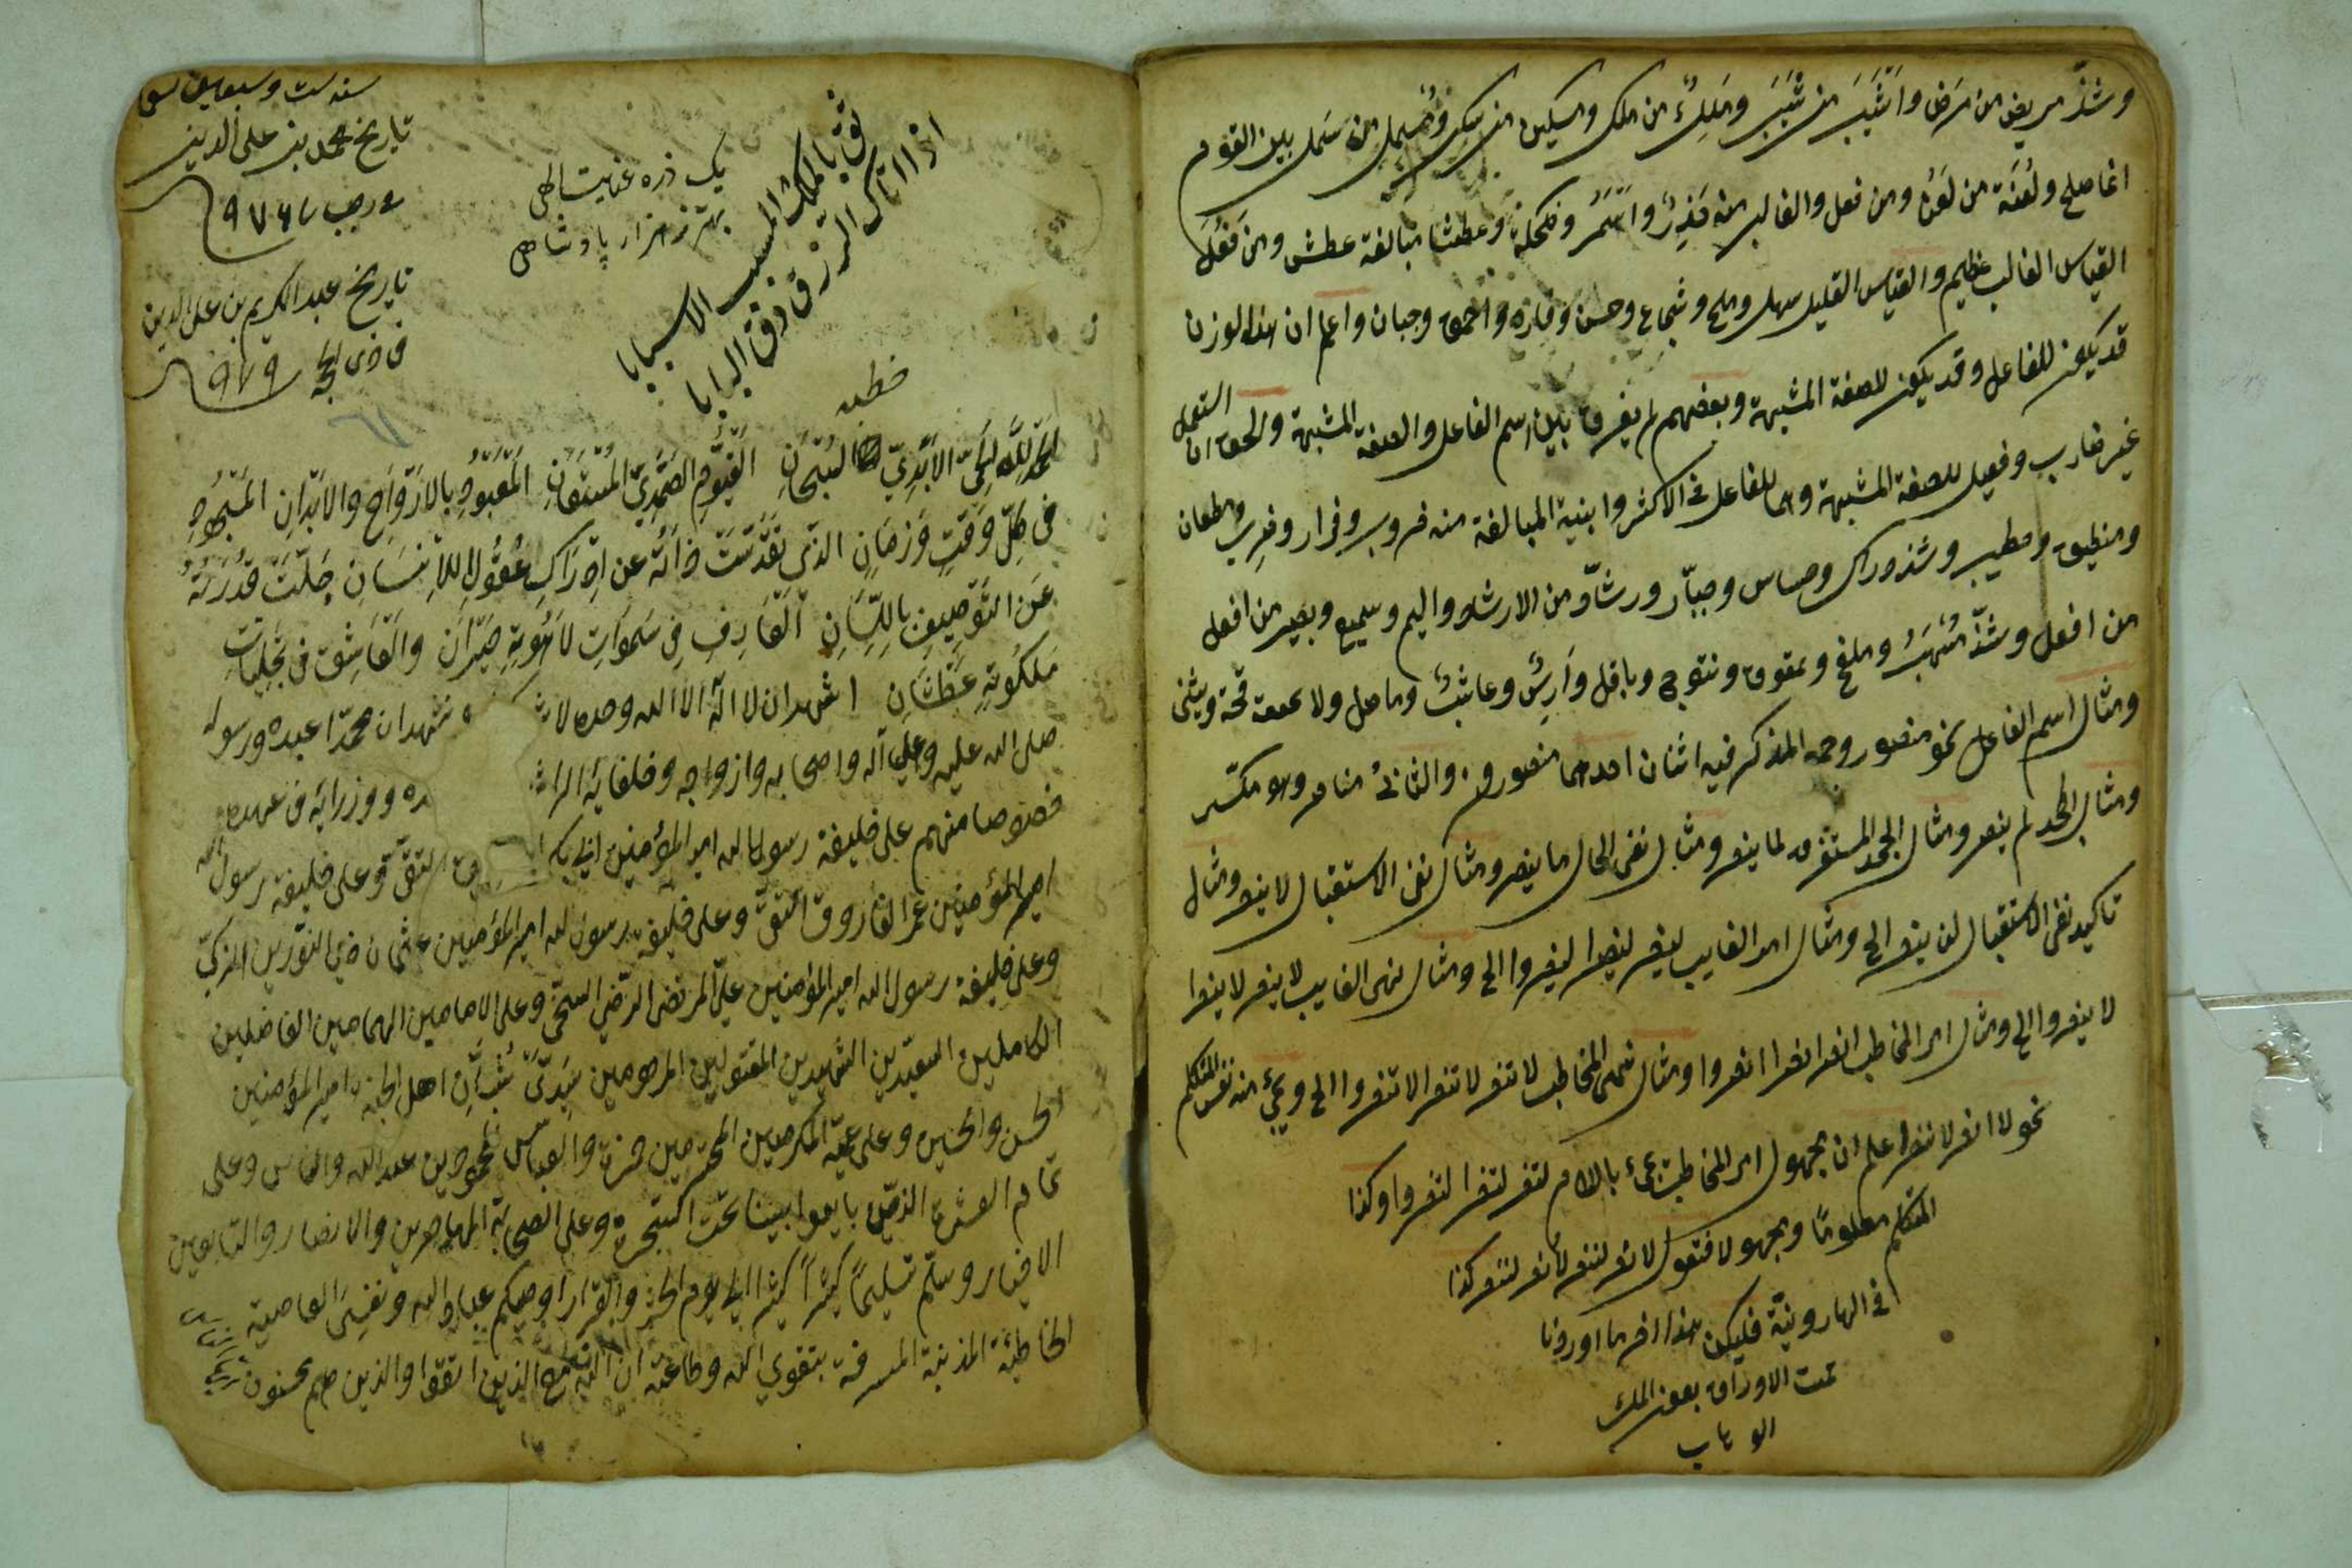 وشذّ مريض من مرض واَشْيَبَ من شَيَبَ ومَلِكٌ من ملك ومسكين من سكن ومُسمل من سَمل بين القوم
اذا صلح ولُعَنَة من لَعَنَ ومن فعل والغالب منه حَذِرٌ واَسْمَرُ وضحكة وعطشا مبالغة عطش ومن فَعُلَ
القياس الغالب عظيم والقياس القليل سهل وملح وشجاع وحسن وفاره واحمق وجبان واعلم ان هذا الوزن
قد يكون للفاعل وقد يكون للصفة المشبهة وبعضهم لم يفرق بين اسم الفاعل والصفة المشبهة والحق ان
غير ضارب وفعيل للصفة المشبهة وهما للفاعل في الاكثر وابنية المبالغة منه ضروب وضراب ومطعان
ومنطيق وشذ دراك وحساس وجبّار ورشاد من الارشاد واليم وسميع وبصير من افعل
من افعل وشذّ مُسْهَبٌ وملقح وعقوق ونتوج وباقل وَارِسٌ وعاشب وماحل ويثنى
ومثال اسم الفاعل نحو منصور وجمع المذكر فيه اثنان احدهما منصورون والثاني مناصر وهو مكسّر
ومثال الجحد لم ينصر ومثال الجحد المستغرق لما ينصر ومثال نفى الحال ما ينصر ومثال نفى الاستقبال لا ينصر ومثال
تاكيد نفى الاستقبال لن ينصر الخ ومثال امر الغايب لينصر لينصرا لينصروا الخ ومثال نهى الغايب لا ينصر لا ينصرا
لا ينصروا الخ ومثال امر المخاطب انصر انصرا انصروا ومثال نهى المخاطب لا تنصر لا تنصرا لا تنصروا الخ ويجئ من نفس المتكلم
نحو لا انصر لا ننصر اعلم ان مجهول امر المخاطب يجئ بالام لتنصر لتنصرا لتنصروا وكذا
المتكلم معلوما ومجهولا فتقول لانصر لننصر لاُنصر لنُنصر كذا
في الهارونيّة فليكن هذا اخر ما اوردنا
تمت الاوراق بعون الملك
الوهاب
سنه ست وسبعين
تاريخ محمد بن على الدين
رجب ٩٧٦
تاريخ عبد الكريم بن على الدين
فى ذى الحجه ٩٧٩
يک ذره عنايت الهى
بهتر ز هزار پادشاهى
ثق بالملك المسبب الاسبابا
اذا اتاك الرزق دق البابا
خطبه
الحمد لله الحىّ الاَبَدِيّ السُبْحَانِ القَيُّومِ الصَّمَدِيّ المُسْتَعَانِ المَعْبُودِ بِالاَرْوَاحِ والاَبْدَانِ المَسْجُودِ
فى كلّ وَقتٍ وَزمَانٍ الذى تقَدَّسَتْ ذاتُهُ عن اِدْرَاكِ عُقُولِ الاِنْسَانِ جلّتْ قُدْرَتُهُ
عَن التَّوْصِيفِ بِاللِّسَانِ العَارِفِ فى سَمٰوَاتِ لاَهُوتِهِ حَيْرَانَ والعَاشِق فى تجليات
مَلكُوتِهِ عَطْشَانِ اشهد ان لا اله الا الله وحده لا نشهد ان محمّدا عبده ورسوله
صلى الله عليه وعلى آله واصحابه وازواجه وخلفايه ووزرايه فى عهده
خصوصا منهم على خليفة رسول الله امير المؤمنين ابى بكر التقىّ وعلى خليفة رسول الله
امير المؤمنين عمر الفاروق النقىّ وعلى خليفة رسول الله امير المؤمنين عثمان ذى النّورين الزكىّ
وعلى خليفة رسول الله امير المؤمنين علىّ المرتضى الرّضى السخىّ وعلى الامامين الهمامين الفاضلين
الكاملين السعيدين الشهيدين المقتولين المرحومين سَيِدَىْ شُبَّانِ اهل الجنة امير المؤمنين
الحسن والحسين وعلى عميّه المكرمين المحترمين حمزة والعباس عند الله والناس وعلى
تمام العشرة الذين بايعوا نبينا تحت الشجرة وعلى الصحابة المهاجرين والانصار والتابعين
الاخيار وسلّم تسليماً كثيراً كثيرا الى يوم الحشر والقرار اوصيكم عباد الله ونفسى العاصية
الخاطئة المذنبة المسرفة بتقوى الله وطاعته ان الله مع الذين اتقوا والذين هم محسنون